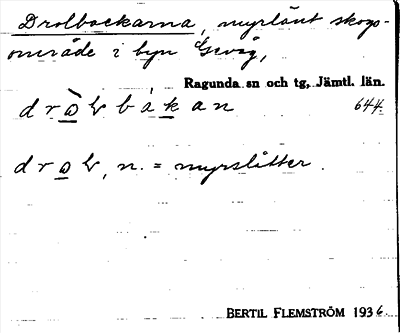 Drolbackarna, myrlänt skogs-
område i byn Gevåg,
Ragunda sn och tg, Jämtl. län.
d r ɷ̀ ɫ b á k a n 644.
d r ɷ ɫ, n. = myrslåtter.
BERTIL FLEMSTRÖM 1936.